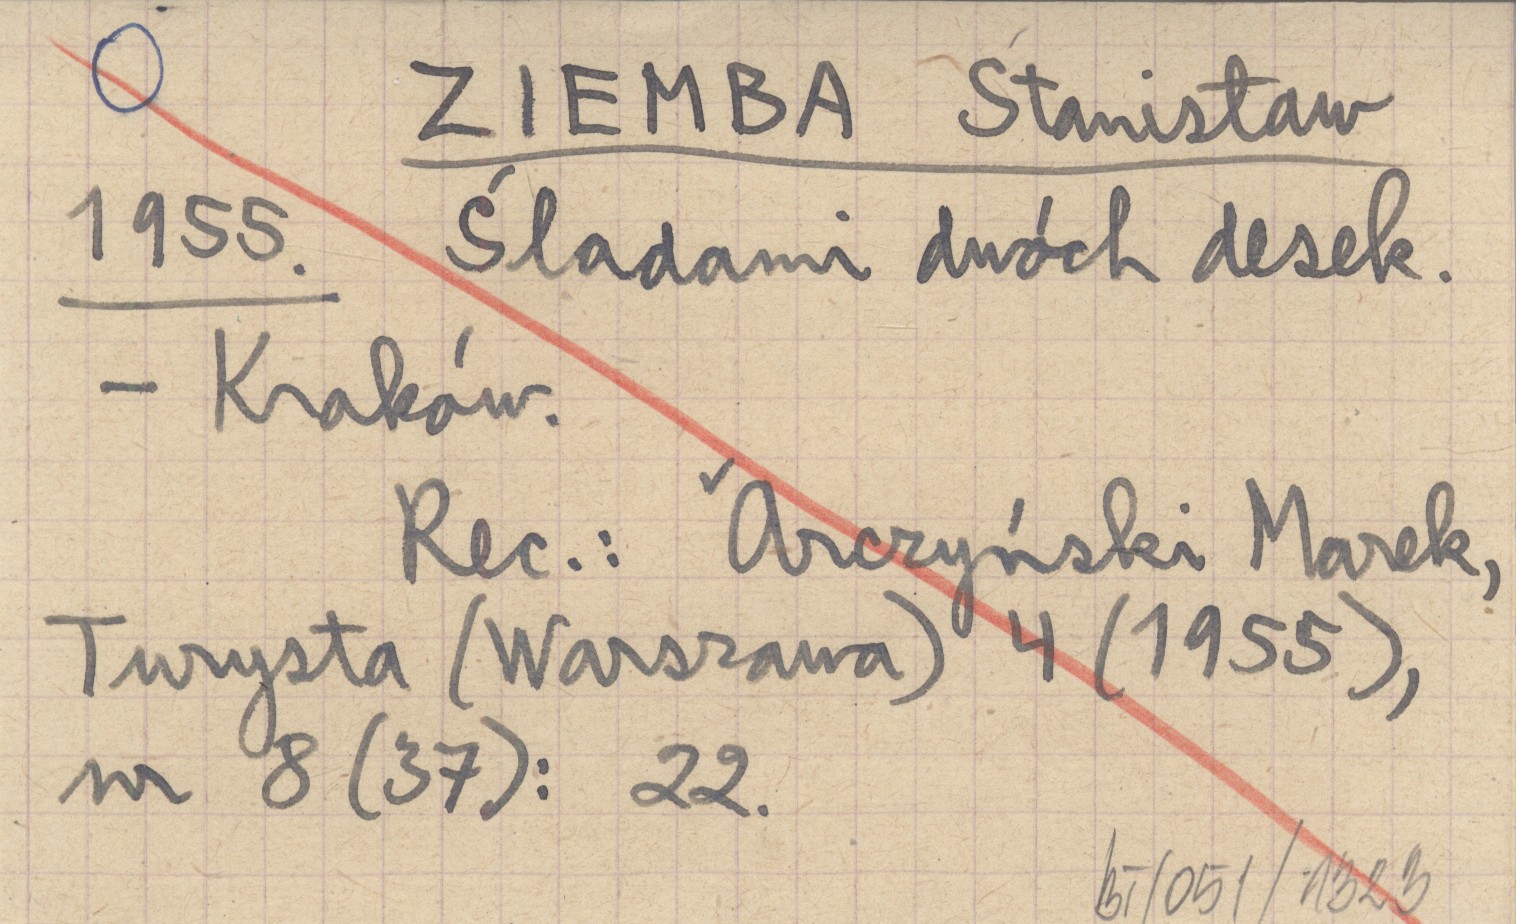 ZIEMBA Stanisław
1955. Śladami dwóch desek.
– Kraków.
Rec.: Arczyński Marek,
Turysta (Warszawa) 4 (1955),
nr 8 (37): 22.
BT/051/1323